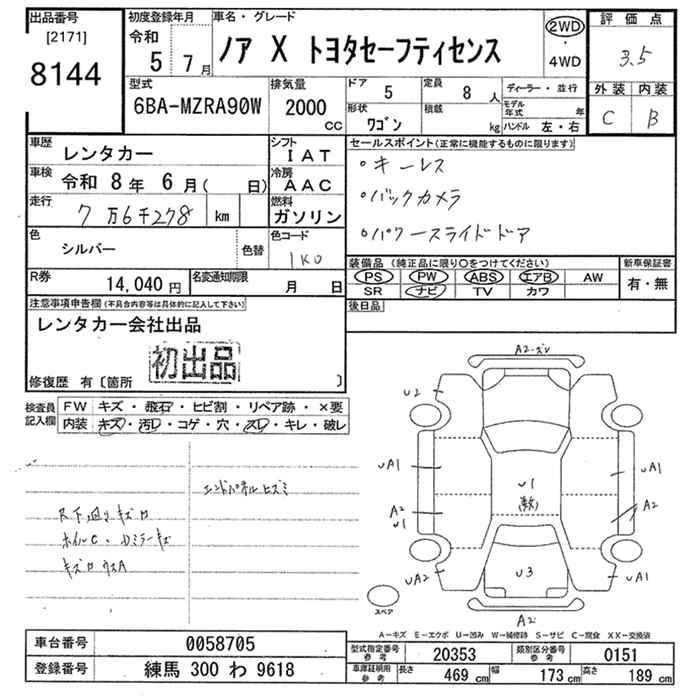 出品番号
[2171]
8144
初度登録年月
令和 5年 7月
車名・グレード
ノア X トヨタセーフティセンス
2WD
・
4WD
評価点
3.5
外装 内装
C B
型式
6BA-MZRA90W
排気量
2000 CC
ドア 5
定員 8 人
形状 ワゴン
積載 kg
ディーラー・並行
モデル年式 年
ハンドル 左・右
車歴 レンタカー
シフト IAT
車検 令和 8年 6月( 日)
冷房 AAC
走行 7万6千278 km
燃料 ガソリン
色 シルバー 色替
色コード 1K0
R券 14,040円
名変通知期限 月 日
セールスポイント(正常に機能するものに限ります)
・キーレス
・バックカメラ
・パワースライドドア
装備品(純正品に限り○をつけてください。)
PS PW ABS エアB AW
SR ナビ TV カワ
新車保証書
有・無
後日品
注意事項申告欄(不具合内容等は具体的に記入して下さい)
レンタカー会社出品
初出品
修復歴 有〔箇所 〕
検査員記入欄
FW キズ・飛石・ヒビ割・リペア跡・×要
内装 キズ・汚レ・コゲ・穴・スレ・キレ・破レ
エンドパネルヒズミ
R下廻りキズ
ホイルC・Dミラーキズ
A2
U2
UA1
UA1
A2
U1
U1
A2
UA2
U3
UA1
A2
スペア
A-キズ E-エクボ U-凹み W-補修跡 S-サビ C-腐食 XX-交換済
車台番号 0058705
登録番号 練馬 300 わ 9618
型式指定番号 参考 20353
類別区分番号 参考 0151
車庫証明用 参考 長さ 469 cm 幅 173 cm 高さ 189 cm